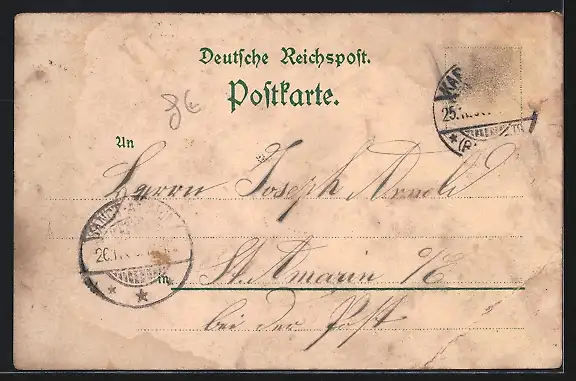 Deutsche Reichspost.
Postkarte.
86
An
Herrn Joseph Arnold
in St. Amarin o/E
bei der Post